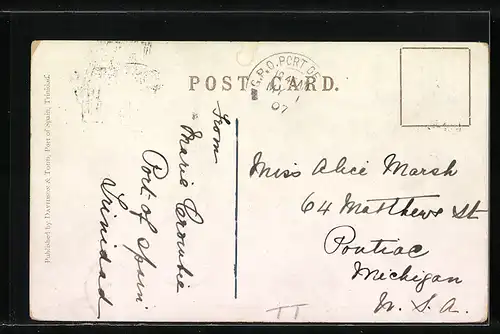 POST CARD.
G.P.O. PORT OF
07
Published by Davidson & Todd, Port of Spain, Trinidad.
From
Marie Crowbie
Port of Spain
Trinidad
Miss Alice Marsh
64 Matthews St
Pontiac
Michigan
U. S. A.